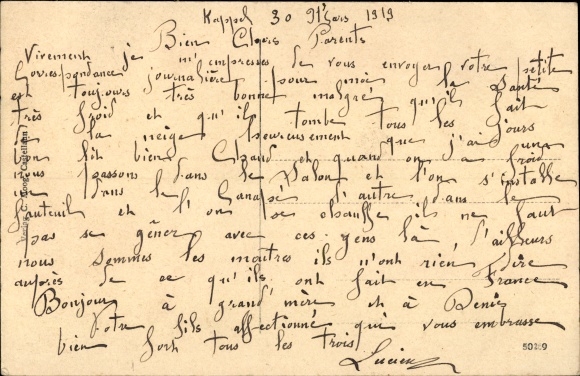 Kappel 30 Mars 1919
Bien Chers Parents
Vivement je m'empresse de vous envoyer votre petite
Correspondance journalière pour moi la Santé
est toujours très bonne malgré qu'il fait
très froid et qu'il tombe tous les jours
de la neige heureusement que j'ai un
bon lit bien Chaud et quand on a froid
nous passons dans le Salon et l'on s'installe
un dans le Canapé l'autre dans le
fauteuil et l'on se chauffe ils ne faut
pas se gêner avec ces gens là, d'ailleurs
nous sommes les maitres ils n'ont rien dire
auprès de ce qu'ils ont fait en France
Bonjour à grand'mère et à Denis
Votre fils affectionné qui vous embrasse
bien fort tous les trois
Lucien
50289